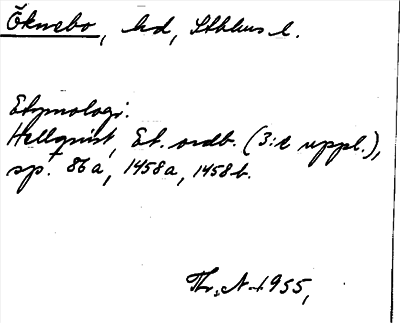 Öknebo, hd, Sthlms l.
Etymologi:
Hellquist, Et. ordb. (3:e uppl.),
sp. 86a, 1458a, 1458b.
1955,